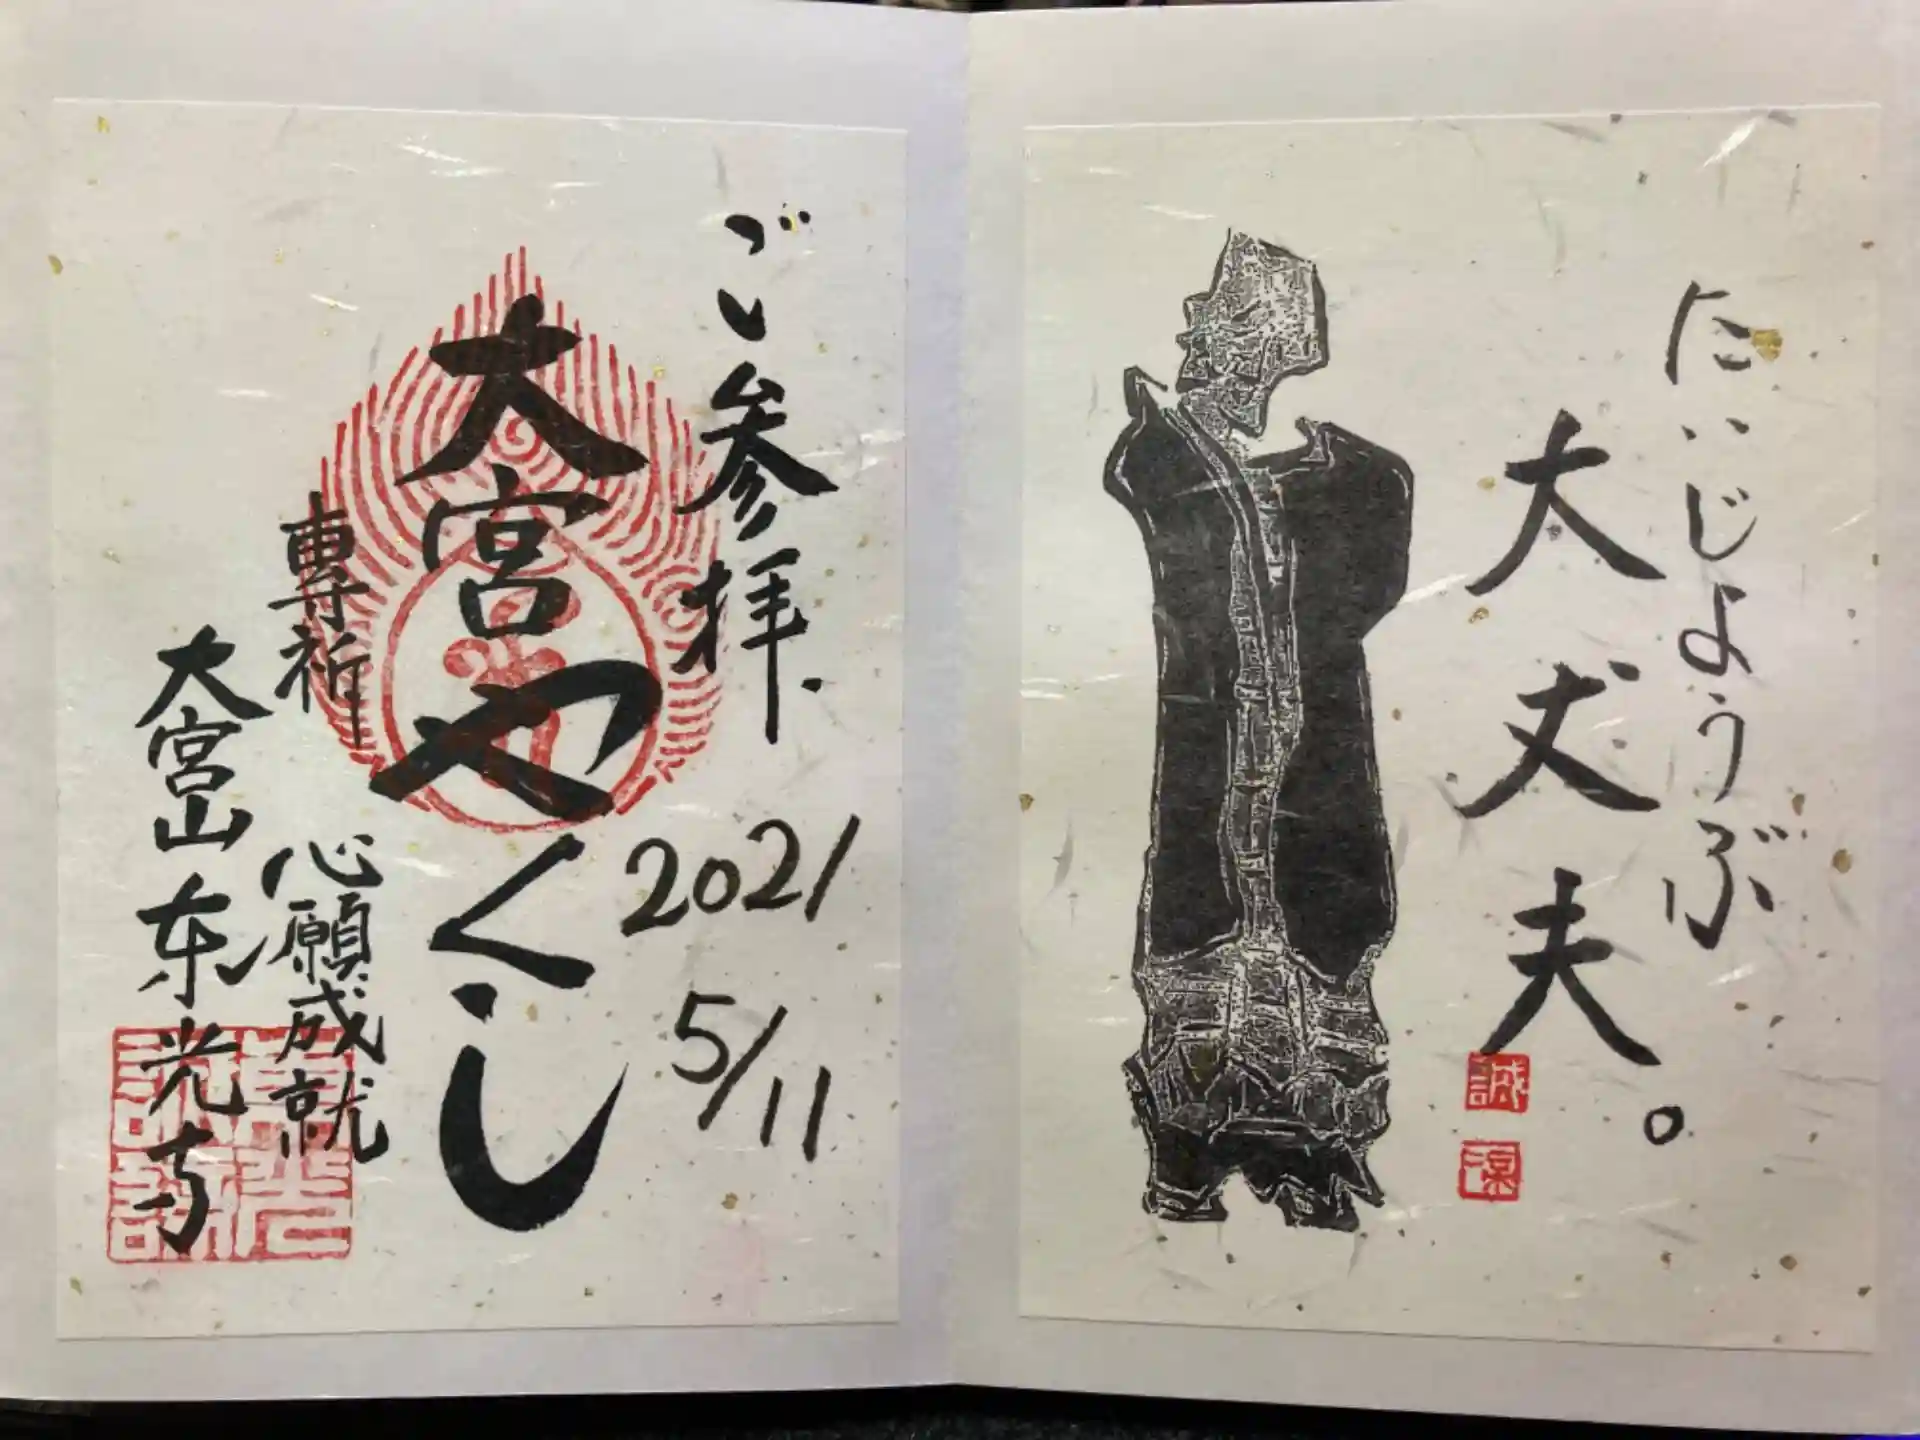 たいじょうぶ
大丈夫。
誠
涼
ご参拝.
2021/
5/11
大宮やくし
専祈 心願成就
大宮山 东光寺